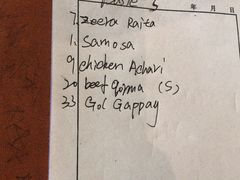 年 月 日
7. Zeera Raita
1. Samosa
9 chicken Achari
20 beef qorma (S)
33 Gol Gappay